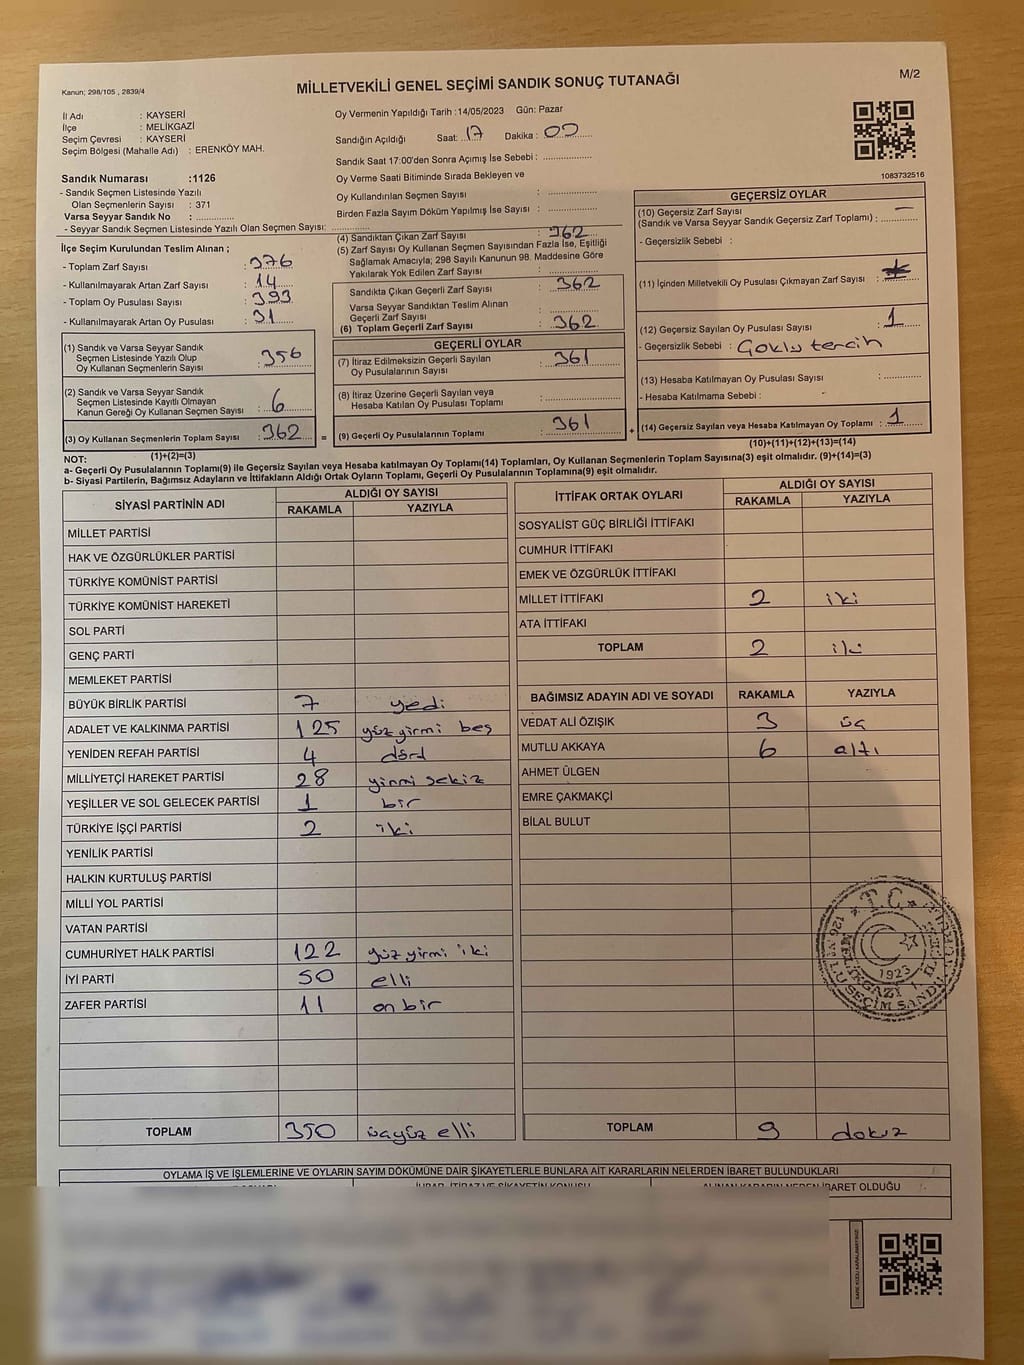 Kanun; 298/105 , 2839/4
MİLLETVEKİLİ GENEL SEÇİMİ SANDIK SONUÇ TUTANAĞI
M/2
İl Adı : KAYSERİ
İlçe : MELİKGAZİ
Seçim Çevresi : KAYSERİ
Seçim Bölgesi (Mahalle Adı) : ERENKÖY MAH.
Sandık Numarası :1126
- Sandık Seçmen Listesinde Yazılı
Olan Seçmenlerin Sayısı : 371
Varsa Seyyar Sandık No : ..............
- Seyyar Sandık Seçmen Listesinde Yazılı Olan Seçmen Sayısı: ..............
Oy Vermenin Yapıldığı Tarih :14/05/2023 Gün: Pazar
Sandığın Açıldığı Saat: 17 Dakika : 00
Sandık Saat 17:00'den Sonra Açımış İse Sebebi : ..............
Oy Verme Saati Bitiminde Sırada Bekleyen ve
Oy Kullandırılan Seçmen Sayısı : ..............
Birden Fazla Sayım Döküm Yapılmış İse Sayısı : ..............
1083732516
İlçe Seçim Kurulundan Teslim Alınan ;
- Toplam Zarf Sayısı : 376
- Kullanılmayarak Artan Zarf Sayısı : 14
- Toplam Oy Pusulası Sayısı : 393
- Kullanılmayarak Artan Oy Pusulası : 31
(1) Sandık ve Varsa Seyyar Sandık
Seçmen Listesinde Yazılı Olup
Oy Kullanan Seçmenlerin Sayısı : 356
(2) Sandık ve Varsa Seyyar Sandık
Seçmen Listesinde Kayıtlı Olmayan
Kanun Gereği Oy Kullanan Seçmen Sayısı : 6
(3) Oy Kullanan Seçmenlerin Toplam Sayısı : 362 =
(1)+(2)=(3)
(4) Sandıktan Çıkan Zarf Sayısı : 362
(5) Zarf Sayısı Oy Kullanan Seçmen Sayısından Fazla İse, Eşitliği
Sağlamak Amacıyla; 298 Sayılı Kanunun 98. Maddesine Göre
Yakılarak Yok Edilen Zarf Sayısı : ..............
Sandıkta Çıkan Geçerli Zarf Sayısı : 362
Varsa Seyyar Sandıktan Teslim Alınan
Geçerli Zarf Sayısı : ..............
(6) Toplam Geçerli Zarf Sayısı : 362
GEÇERLİ OYLAR
(7) İtiraz Edilmeksizin Geçerli Sayılan
Oy Pusulalarının Sayısı : 361
(8) İtiraz Üzerine Geçerli Sayılan veya
Hesaba Katılan Oy Pusulası Toplamı : ..............
(9) Geçerli Oy Pusulalarının Toplamı : 361 +
GEÇERSİZ OYLAR
(10) Geçersiz Zarf Sayısı —
(Sandık ve Varsa Seyyar Sandık Geçersiz Zarf Toplamı) : ..............
- Geçersizlik Sebebi :
(11) İçinden Milletvekili Oy Pusulası Çıkmayan Zarf Sayısı :
(12) Geçersiz Sayılan Oy Pusulası Sayısı : 1
- Geçersizlik Sebebi : Çoklu tercih
(13) Hesaba Katılmayan Oy Pusulası Sayısı : ..............
- Hesaba Katılmama Sebebi :
(14) Geçersiz Sayılan veya Hesaba Katılmayan Oy Toplamı : 1
(10)+(11)+(12)+(13)=(14)
NOT:
a- Geçerli Oy Pusulalarının Toplamı(9) ile Geçersiz Sayılan veya Hesaba katılmayan Oy Toplamı(14) Toplamları, Oy Kullanan Seçmenlerin Toplam Sayısına(3) eşit olmalıdır. (9)+(14)=(3)
b- Siyasi Partilerin, Bağımsız Adayların ve İttifakların Aldığı Ortak Oyların Toplamı, Geçerli Oy Pusulalarının Toplamına(9) eşit olmalıdır.
SİYASİ PARTİNİN ADI ALDIĞI OY SAYISI
RAKAMLA YAZIYLA
MİLLET PARTİSİ
HAK VE ÖZGÜRLÜKLER PARTİSİ
TÜRKİYE KOMÜNİST PARTİSİ
TÜRKİYE KOMÜNİST HAREKETİ
SOL PARTİ
GENÇ PARTİ
MEMLEKET PARTİSİ
BÜYÜK BİRLİK PARTİSİ 7 yedi
ADALET VE KALKINMA PARTİSİ 125 yüzyirmi beş
YENİDEN REFAH PARTİSİ 4 dörd
MİLLİYETÇİ HAREKET PARTİSİ 28 yirmi sekiz
YEŞİLLER VE SOL GELECEK PARTİSİ 1 bir
TÜRKİYE İŞÇİ PARTİSİ 2 iki
YENİLİK PARTİSİ
HALKIN KURTULUŞ PARTİSİ
MİLLİ YOL PARTİSİ
VATAN PARTİSİ
CUMHURİYET HALK PARTİSİ 122 yüzyirmi iki
İYİ PARTİ 50 elli
ZAFER PARTİSİ 11 on bir
TOPLAM 350 üçyüz elli
İTTİFAK ORTAK OYLARI ALDIĞI OY SAYISI
RAKAMLA YAZIYLA
SOSYALİST GÜÇ BİRLİĞİ İTTİFAKI
CUMHUR İTTİFAKI
EMEK VE ÖZGÜRLÜK İTTİFAKI
MİLLET İTTİFAKI 2 iki
ATA İTTİFAKI
TOPLAM 2 iki
BAĞIMSIZ ADAYIN ADI VE SOYADI RAKAMLA YAZIYLA
VEDAT ALİ ÖZIŞIK 3 üç
MUTLU AKKAYA 6 altı
AHMET ÜLGEN
EMRE ÇAKMAKÇİ
BİLAL BULUT
T.C.
1923
TOPLAM 9 dokuz
OYLAMA İŞ VE İŞLEMLERİNE VE OYLARIN SAYIM DÖKÜMÜNE DAİR ŞİKAYETLERLE BUNLARA AİT KARARLARIN NELERDEN İBARET BULUNDUKLARI
ALINAN KARARIN NEDEN İBARET OLDUĞU